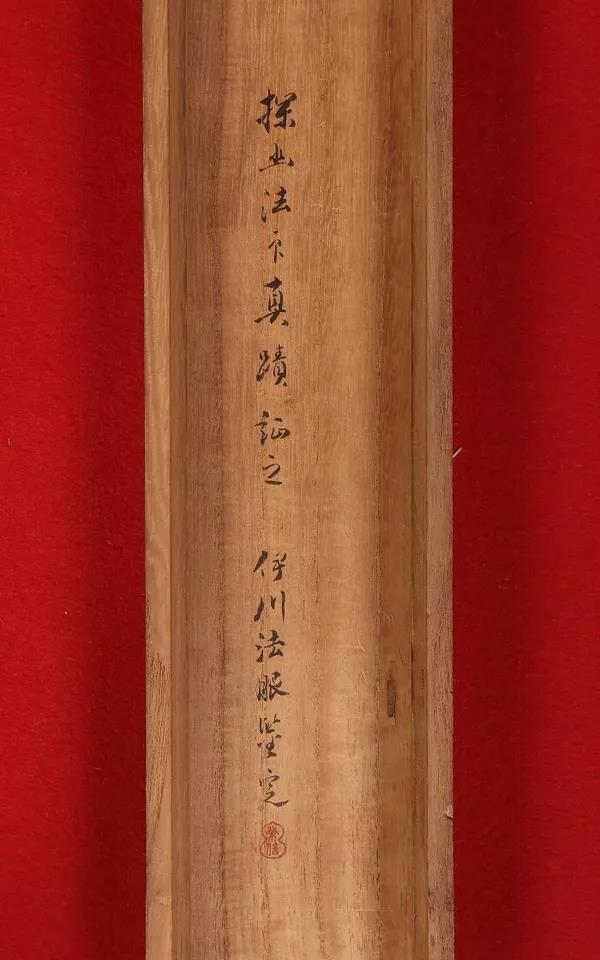 探幽法印真蹟証之 伊川法眼鑒定
栄信